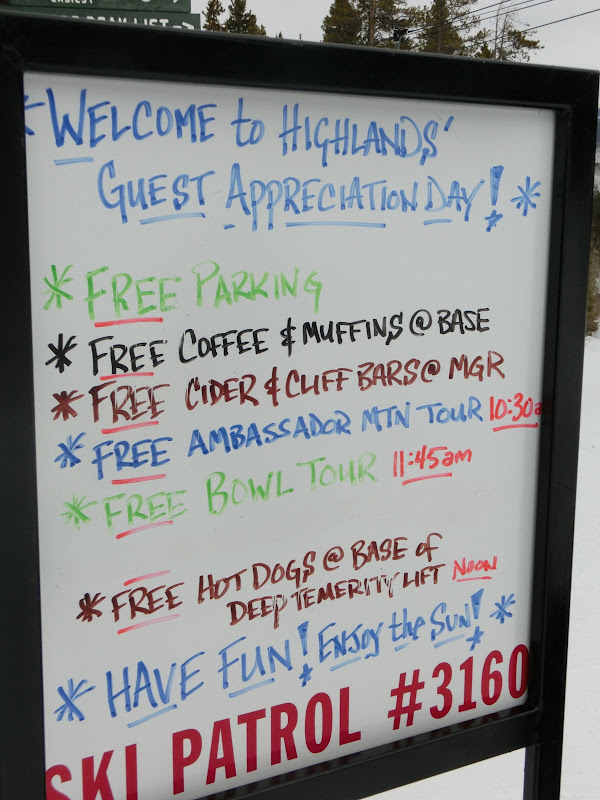 EASIEST
PEAK LIFT →
* WELCOME to HIGHLANDS'
GUEST APPRECIATION DAY! *
* FREE PARKING
* FREE COFFEE & MUFFINS @ BASE
* FREE CIDER & CLIFF BARS @ MGR
* FREE AMBASSADOR MTN TOUR 10:30a
* FREE BOWL TOUR 11:45am
* FREE HOT DOGS @ BASE of
DEEP TEMERITY LIFT NOON
* HAVE FUN! ENJOY the SUN! *
SKI PATROL #3160